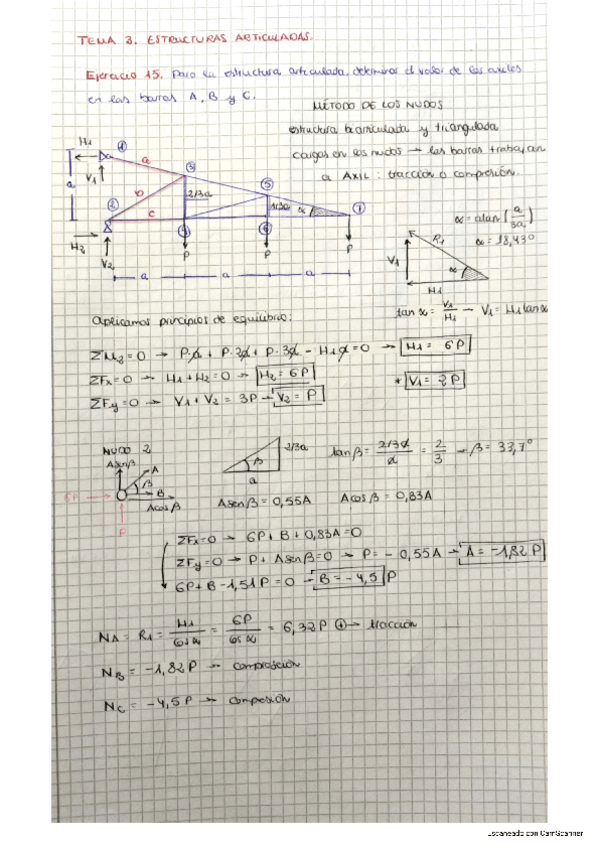 TEMA 3. ESTRUCTURAS ARTICULADAS.
Ejercicio 15. Para la estructura articulada, determinar el valor de los axiles
en las barras A, B y C.
MÉTODO DE LOS NUDOS
estructura biarticulada y triangulada
cargas en los nudos → las barras trabajan
a AXIL : tracción o compresión.
H1
1
a
V1
3
a
b
2/3a
5
1/3a
α
7
2
c
4
6
H2
V2
P
P
P
a
a
a
α = atan (a/3a)
α = 18,43º
R1
V1
α
H1
tan α = V1/H1 → V1 = H1 tan α
Aplicamos principios de equilibrio:
ΣM2 = 0 → P·a + P·2a + P·3a - H1·a = 0 → H1 = 6P
ΣFx = 0 → H1 + H2 = 0 → H2 = 6P
* V1 = 2P
ΣFy = 0 → V1 + V2 = 3P → V2 = P
NUDO 2
A senβ
A
β
B
A cosβ
6P
P
β
2/3a
a
tan β = 2/3a/a = 2/3 → β = 33,7º
A senβ = 0,55A
A cosβ = 0,83A
ΣFx = 0 → 6P + B + 0,83A = 0
ΣFy = 0 → P + A senβ = 0 → P = - 0,55A → A = -1,82 P
6P + B - 1,51P = 0 → B = -4,5 P
NA = R1 = H1/cos α = 6P/cos α = 6,32P ⊕ → tracción
NB = -1,82P → compresión
NC = -4,5P → compresión
Escaneado con CamScanner